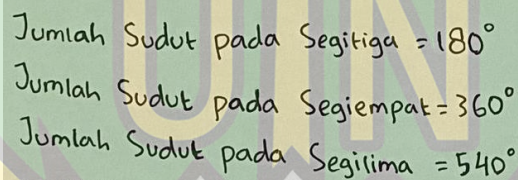 Jumlah Sudut pada Segitiga = 180°
Jumlah Sudut pada Segiempat = 360°
Jumlah Sudut pada Segilima = 540°